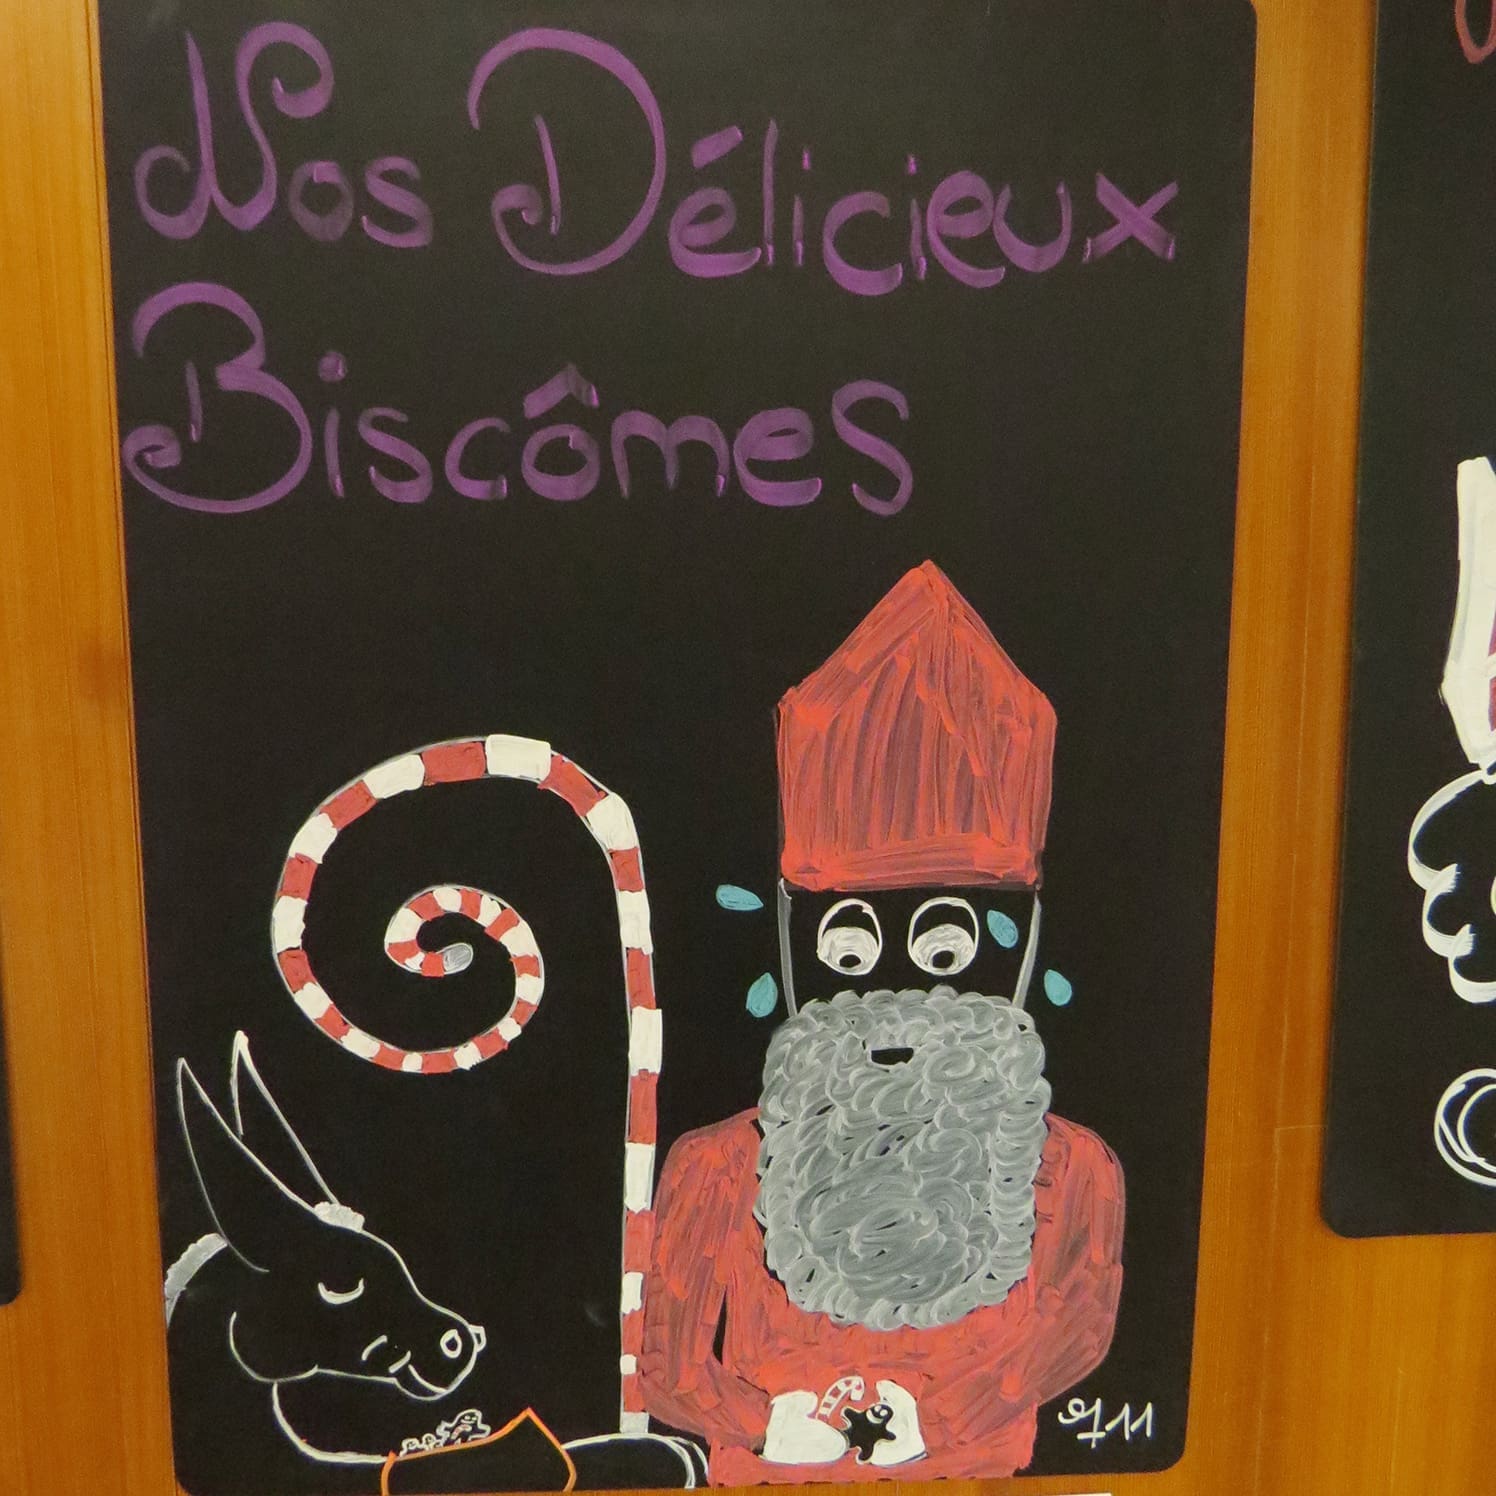 Nos Délicieux
Biscômes